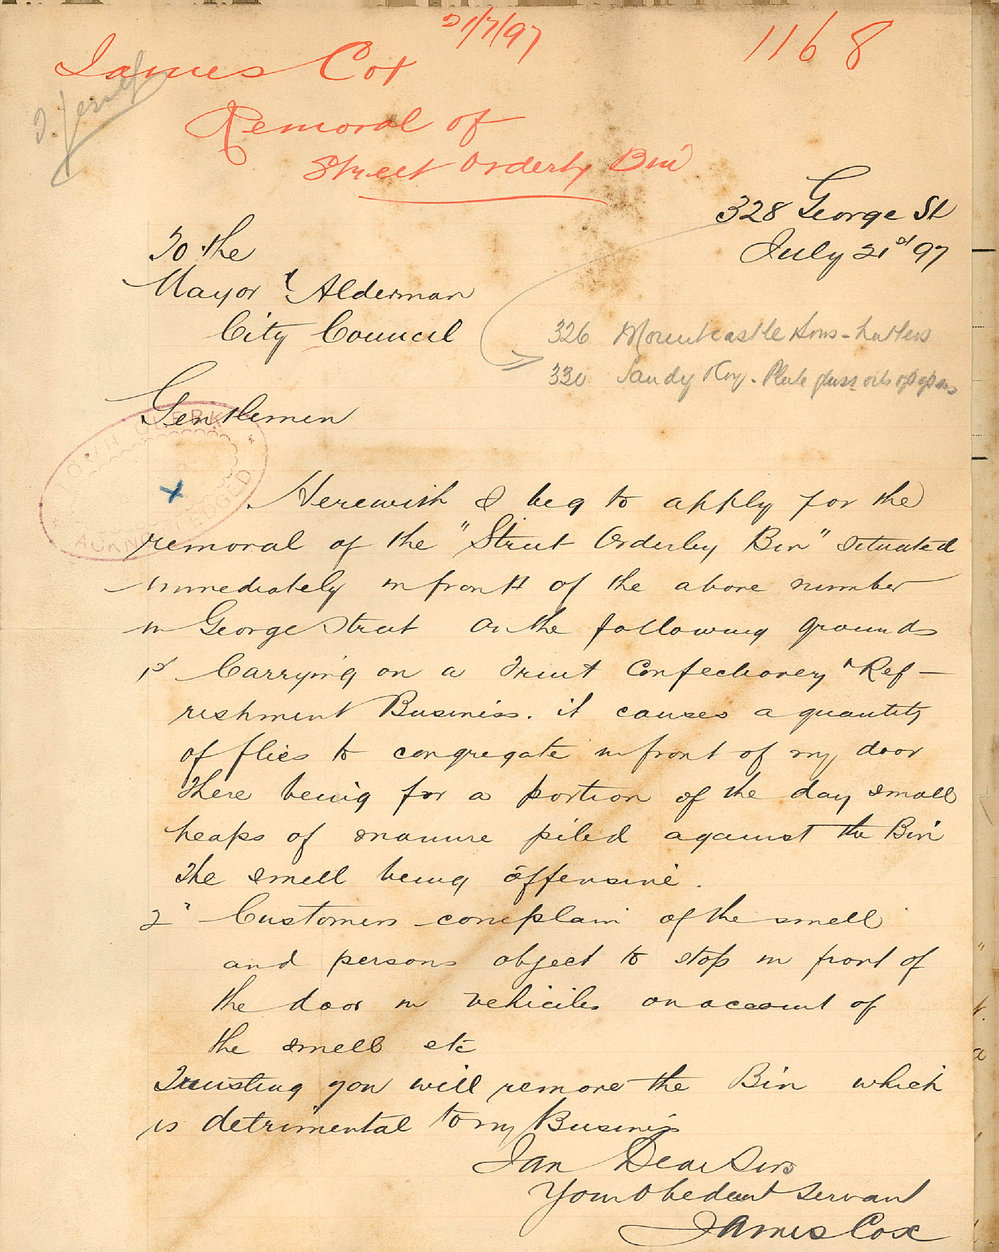 21/7/97
1168
James Cox
Removal of
Street Orderly Bin
328 George St
July 21st 97
To the
Mayor & Alderman
City Council
326 Mountcastle Sons - hatters
330 Sandy & Coy. - Plate glass oils
Gentlemen
TOWN CLERK
ACKNOWLEDGED
Herewith I beg to apply for the
removal of the "Street Orderley Bin" situated
immediately in front of the above number
in George Street on the following grounds
1st Carrying on a Fruit Confectionery & Ref-
reshment Business. it causes a quantity
of flies to congregate in front of my door
There being for a portion of the day small
heaps of manure piled against the Bin
The smell being offensive.
2" Customers complain of the smell
and persons object to stop in front of
the door in vehiciles on account of
the smell etc
Trusting you will remove the Bin which
is detrimental to my Business
I am Dear Sirs
Your Obedient Servant
James Cox